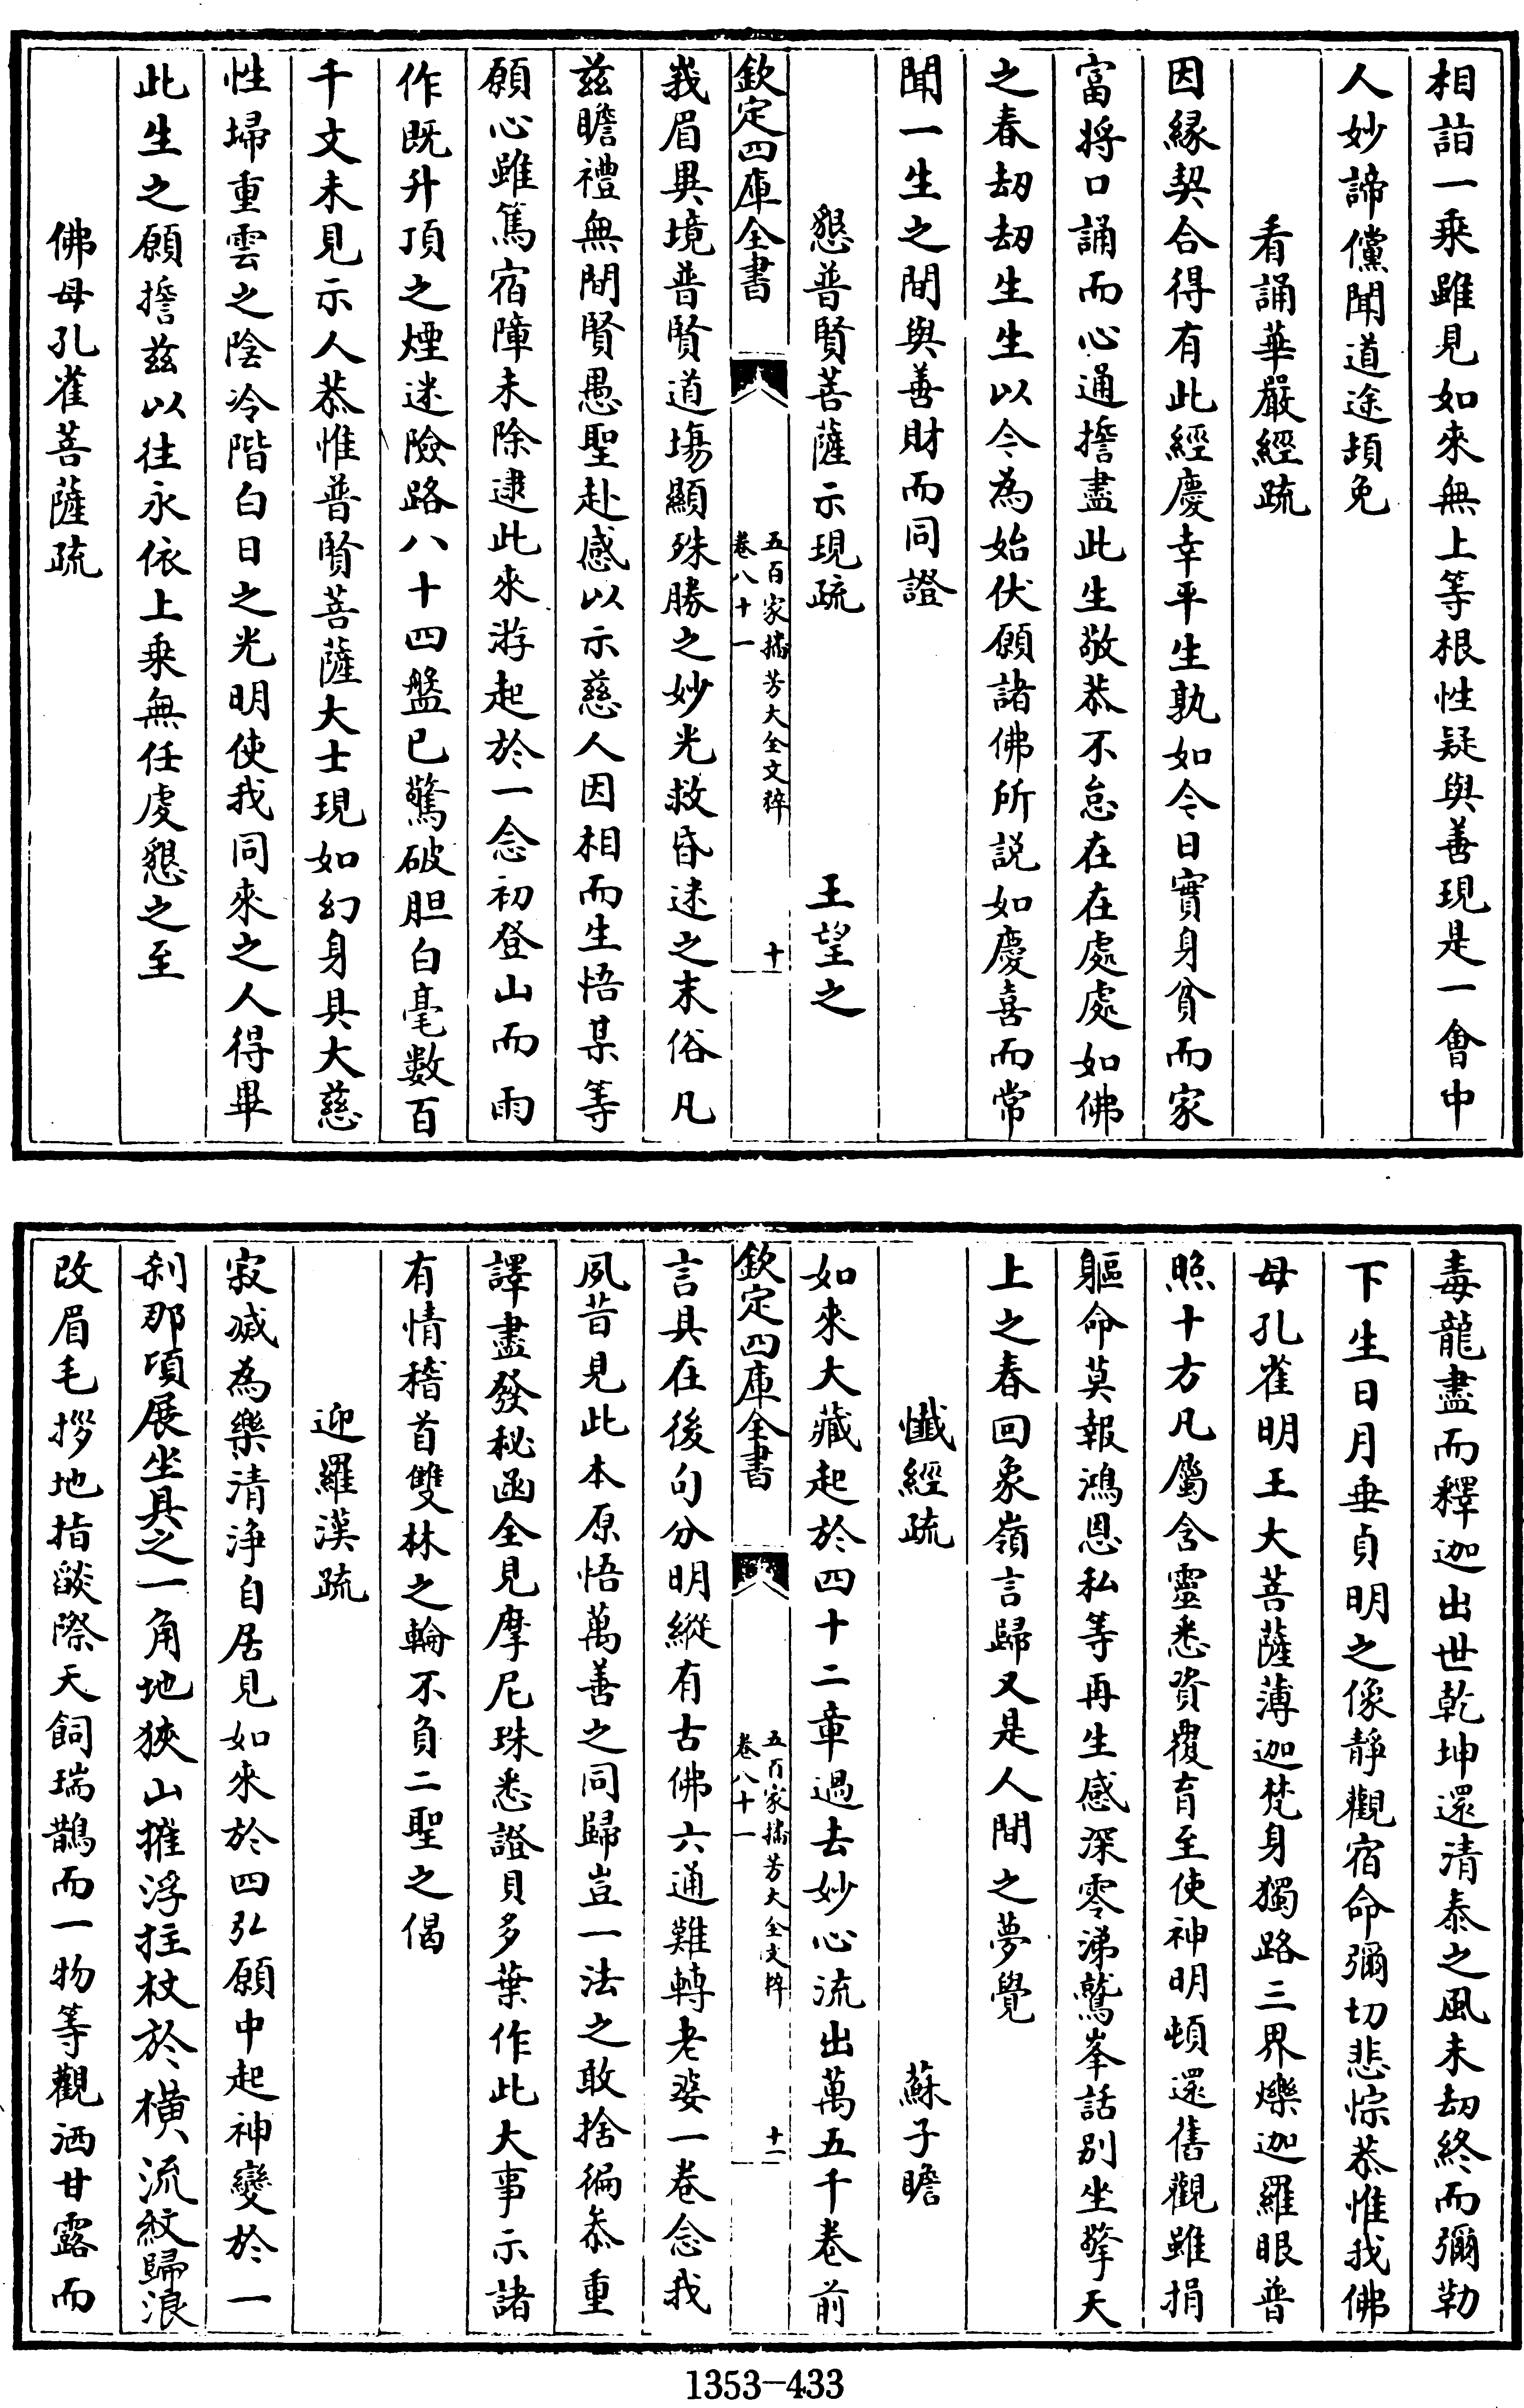 相詣一乘雖見如來無上等根性疑與善現是一會中
人妙諦儻聞道途頓免
看誦華嚴經疏
因縁契合得有此經慶幸平生孰如今日實身貧而家
富將口誦而心通擔盡此生敬恭不怠在在處處如佛
之春刼刼生生以今為始伏願諸佛所説如慶喜而常
聞一生之間與善財而同證
懇普賢菩薩示現疏　王望之
欽定四庫全書
五百家播芳大全文粹
卷八十一
十
峩眉異境普賢道塲顯殊勝之妙光救昏迷之末俗凡
兹瞻禮無間賢愚聖赴感以示慈人因相而生悟某等
願心雖篤宿障未除逮此來游起於一念初登山而雨
作既升頂之煙迷險路八十四盤已驚破胆白毫數百
千丈未見示人恭惟普賢菩薩大士現如幻身具大慈
性埽重雲之陰冷階白日之光明使我同來之人得畢
此生之願擔兹以往永依上乗無任虔懇之至
佛母孔雀菩薩疏
毒龍盡而釋迦出世乾坤還清泰之風末刼終而彌勒
下生日月垂貞明之像靜觀宿命彌切悲悰恭惟我佛
母孔雀明王大菩薩薄迦梵身獨路三界爍迦羅眼普
照十方凡屬含靈悉資覆育至使神明頓還舊觀雖捐
軀命莫報鴻恩私等再生感深零涕鷲峯話别坐擎天
上之春回象嶺言歸又是人間之夢覺
懺經疏　蘇子瞻
如來大藏起於四十二章過去妙心流出萬五千卷前
欽定四庫全書
五百家播芳大全文粹
卷八十一
十一
言具在後句分明縱有古佛六通難轉老婆一卷念我
夙昔見此本原悟萬善之同歸豈一法之敢捨徧叅重
譯盡發秘函全見摩尼珠悉證貝多葉作此大事示諸
有情稽首雙林之輪不負二聖之偈
迎羅漢疏
寂滅為樂清浄自居見如來於四弘願中起神變於一
刹那頃展坐具之一角地狹山摧浮拄杖於横流紋歸浪
改眉毛拶地指燄際天飼瑞鵲而一物等觀洒甘露而
1353-433